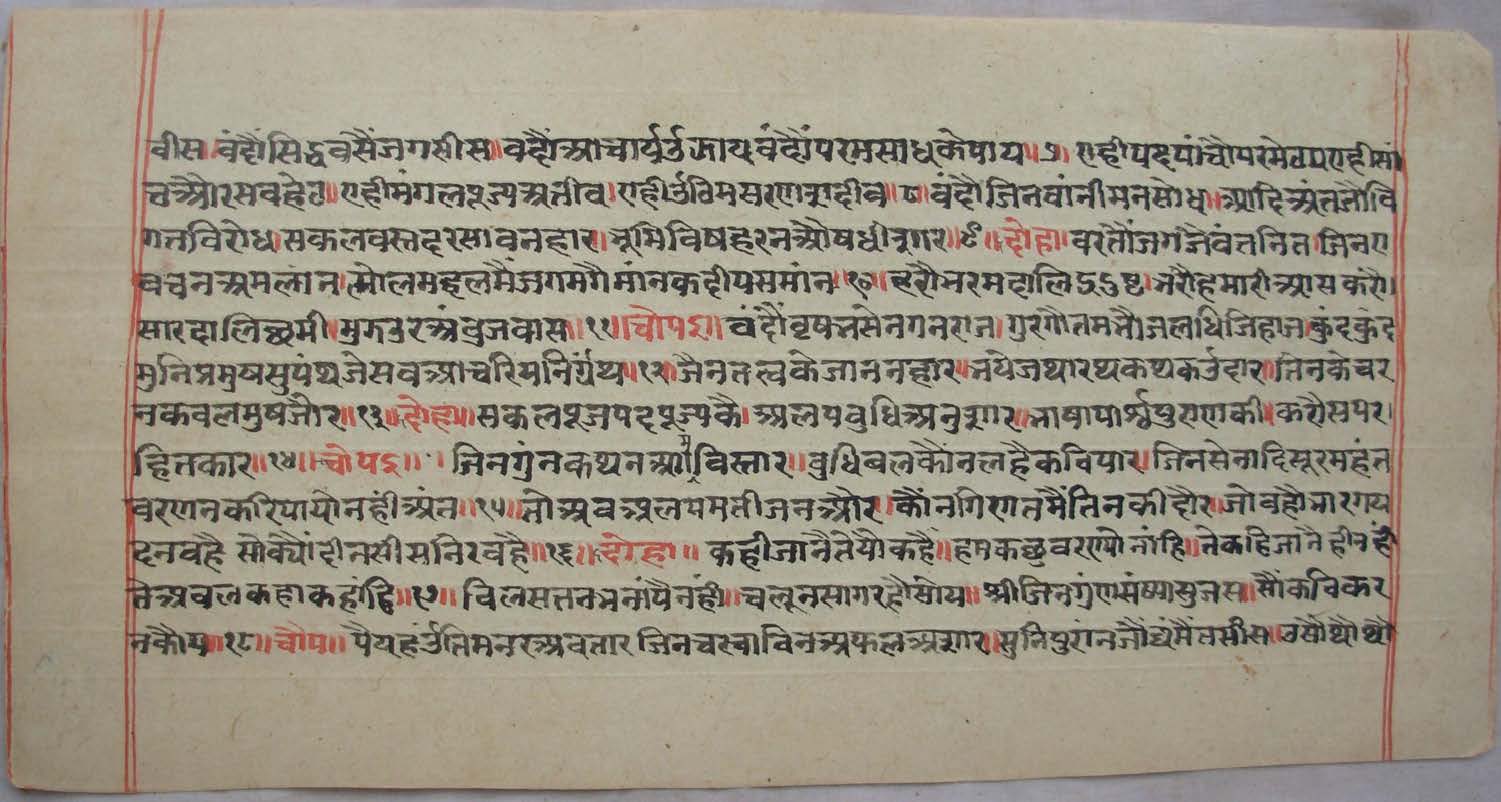 वीस।वंदौंसिद्धवसैंजगसीस॥वंदौंआचार्यउझायवंदौंपरमसाधकेपाय॥७॥एहीपदपांचौपरमेठएहीसां
चऔरसवहेठ॥एहीमंगलपूज्यअतीव।एहीउतिमसरणसुदीव॥८॥वंदौंजिनवांनीमनसोध॥आदिअंतजौवि
गतविरोध।सकलवस्तदरसावनहार।भ्रमिविषहरनऔषधीसार॥९॥दोहा।वरतौंजगजैवंतनित।जिनप्र
वचनअमलांन।लोलमहलमैंजगमगैमांनकदीपसमांन॥१०॥हरौभरमदालिद्रदुष्ट।भरौहमारीआसकरौ।
सारदालिछमी।मुझउरअंबुजवास॥११॥चौपई॥वंदौंवृषभसेनगनराज।गुरगौतमभौजलधिजिहाज।कुंदकुंद
मुनिप्रमुषसुपंथ।जेसवआचरियनिर्ग्रंथ॥१२॥जैनतत्त्वकेजाननहार।भयेजथारथकथकउदार।तिनकेचर
नकवलमुषजोर॥१३॥दोहा॥सकलपूजपदपूज्यकै।अलपवुधिअनुसार॥भाषापार्श्वपुराणकी।करौंसपर।
हितकार॥१४॥चौपई॥जिनगुंनकथनअगमविस्तार॥वुधिवलकौंनलहैकविपार।जिनसेनादिसूरमहंत
वरणनकरिपायौनहींअंत॥१५॥तौअवअलपमतीजनऔर।कौंनगिणतमैंतिनकीदौर।जोवहौभारगयं
दनवहै सोक्यौंदीनससीसनिरवहै॥१६॥दोहा॥कहीजानैतेयौकहै॥हमकछुवरण्योनांहि॥जेकहिजानैहीनंहीं
तेअवलकहाकहांहि॥१७॥विलसतनभनांपैनंहीं॥चलूनसागरहौसोय॥श्रीजिनगुंणसंख्यासुजस॥सौंकविकर
नकोय॥१८॥चौप॥पैयहउतिमनरअवतार जिनचरचाविनअफलअसार॥सुनिपुरांनजौंघुमैनसीस।उसौथौथौ